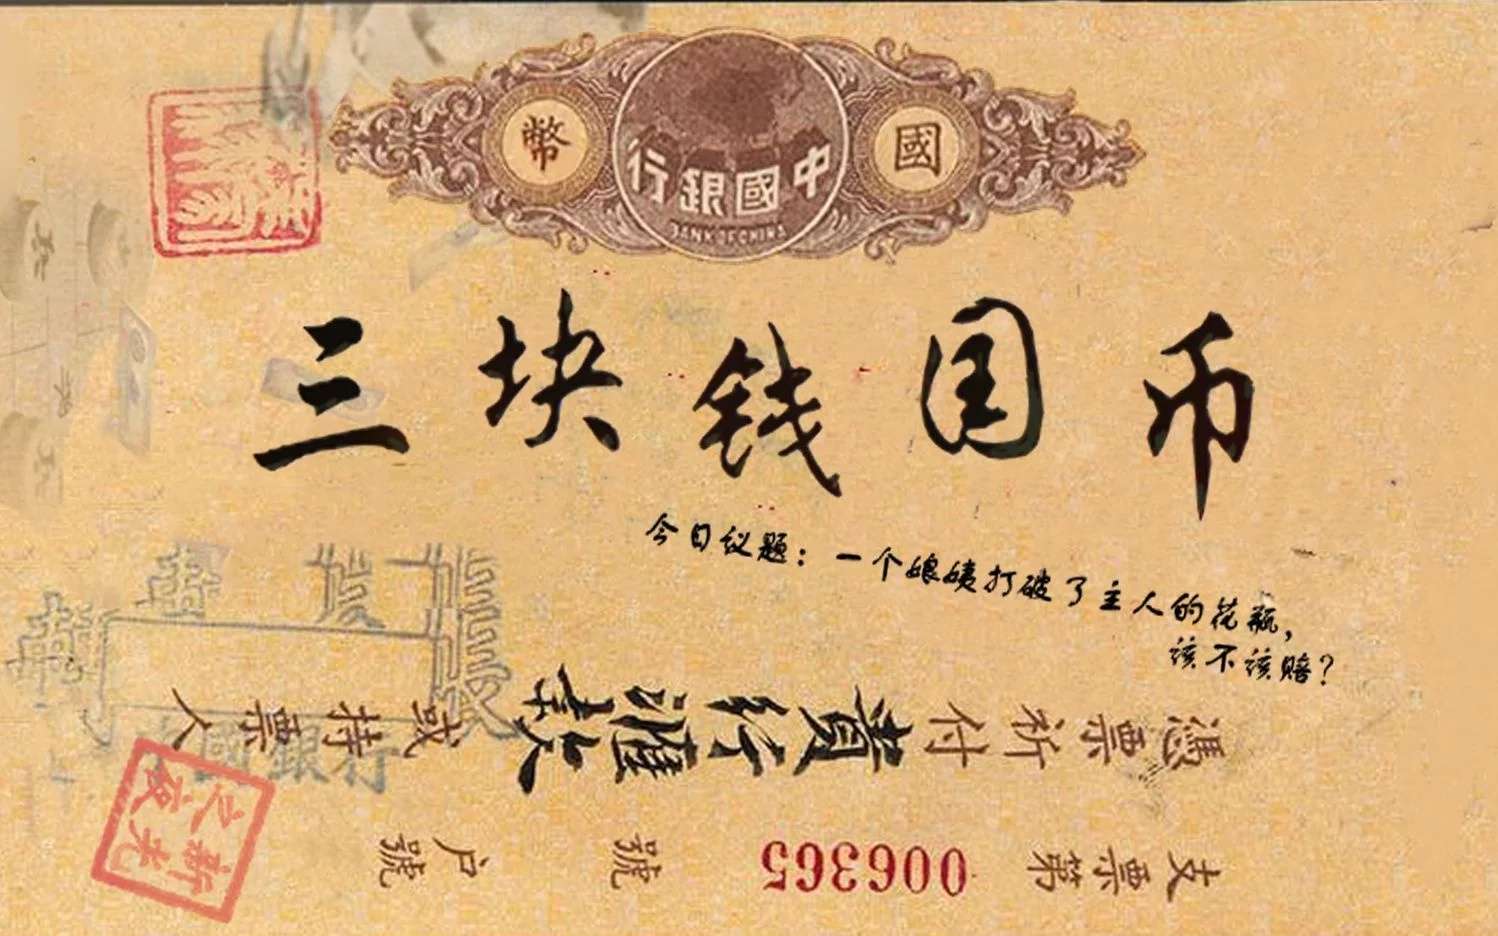 幣 中國銀行 國
BANK OF CHINA
三块钱国币
今日议题：一个娘姨打破了主人的花瓶，
该不该赔？
憑票祈付貴行匯款或持票人
中國銀行
支票第006365號 户號